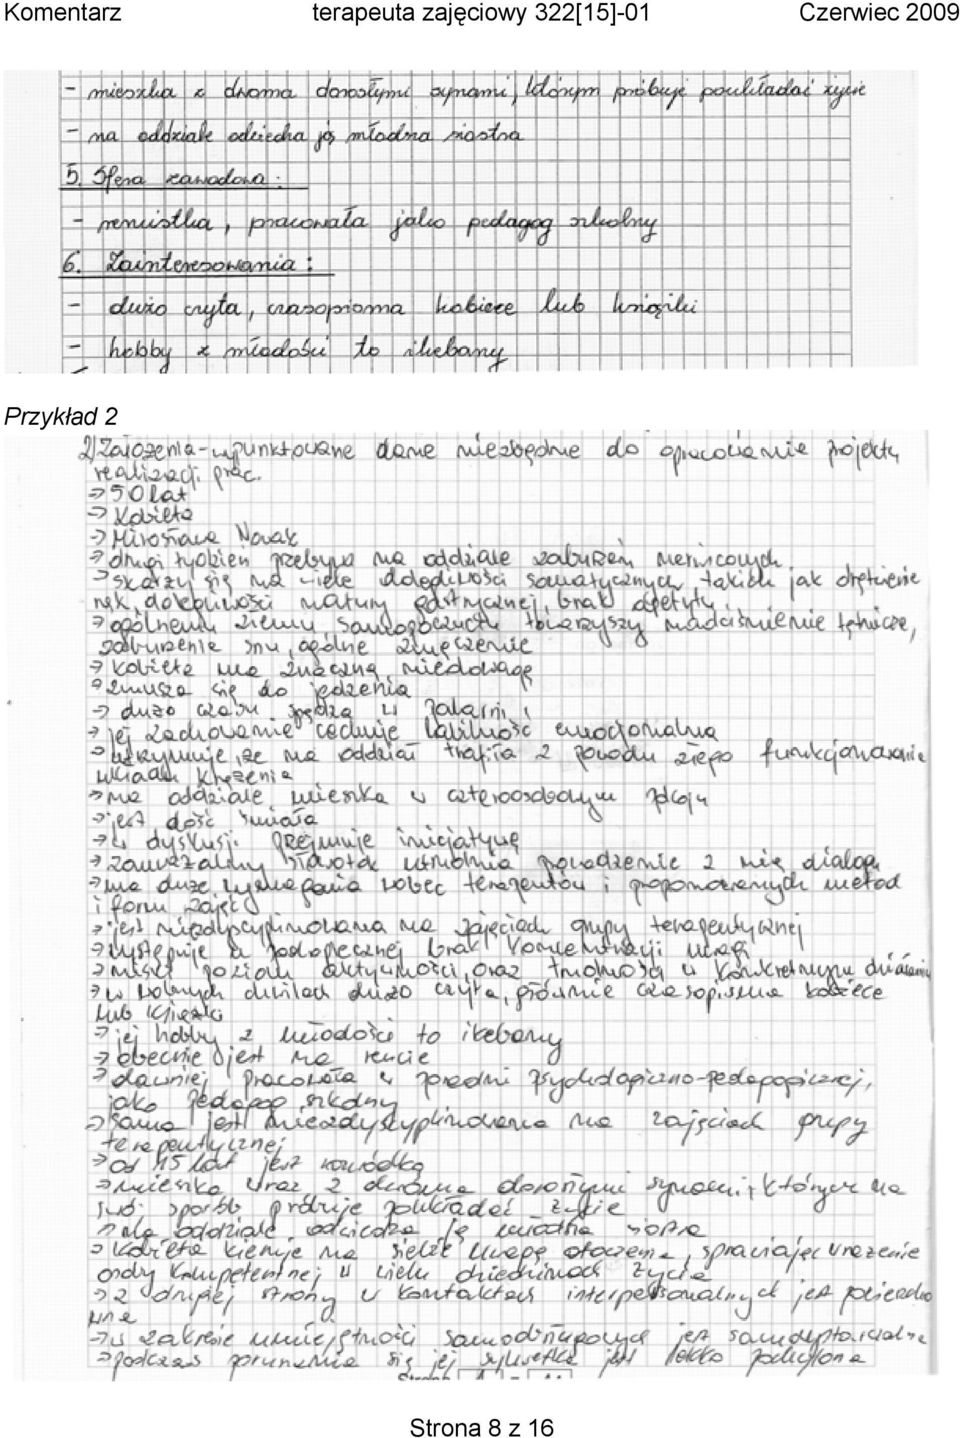 Komentarz terapeuta zajęciowy 322[15]-01 Czerwiec 2009
- mieszka z dwoma dorosłymi synami, którym próbuje poukładać życie
- na oddziale odwiedza ją młodsza siostra
5. Sfera zawodowa:
- rencistka, pracowała jako pedagog szkolny
6. Zainteresowania:
- dużo czyta, czasopisma kobiece lub książki
- hobby z młodości to ikebany
Przykład 2
2) Założenia - wpunktowane dane niezbędne do opracowania projektu
realizacji prac.
→ 50 lat
→ Kobieta
→ Mirosława Nowak
→ drugi tydzień przebywa na oddziale zaburzeń nerwicowych
→ skarży się na wiele dolegliwości somatycznych, takich jak drętwienie
rąk, dolegliwości natury gastrycznej, brak apetytu
→ ogólnemu złemu samopoczuciu towarzyszy nadciśnienie tętnicze,
zaburzenie snu, ogólne zmęczenie
→ kobieta ma znaczną niedowagę
→ zmusza się do jedzenia
→ dużo czasu spędza w palarni
→ jej zachowanie cechuje labilność emocjonalna
→ utrzymuje, że na oddział trafiła z powodu złego funkcjonowania
układu krążenia
→ na oddziale mieszka w czteroosobowym pokoju
→ jest dość śmiała
→ w dyskusji przejmuje inicjatywę
→ zauważalny słowotok utrudnia prowadzenie z nią dialogu
→ ma duże wymagania wobec terapeutów i proponowanych metod
i form zajęć
→ jest niezdyscyplinowana na zajęciach grupy terapeutycznej
→ występuje u podopiecznej brak koncentracji uwagi
→ niski poziom aktywności, oraz trudności w konkretnym działaniu
→ w wolnych chwilach dużo czyta, głównie czasopisma kobiece
lub książki
→ jej hobby z młodości to ikebany
→ obecnie jest na rencie
→ dawniej pracowała w poradni psychologiczno-pedagogicznej,
jako pedagog szkolny
→ sama jest niezdyscyplinowana na zajęciach grupy
terapeutycznej
→ od 15 lat jest rozwódką
→ mieszka wraz z dwoma dorosłymi synami, którym na
swój sposób próbuje poukładać życie
→ na oddziale odwiedza ją młodsza siostra
→ kobieta kieruje na siebie uwagę otoczenia, sprawiając wrażenie
osoby kompetentnej w wielu dziedzinach życia
→ z drugiej strony w kontaktach interpersonalnych jest
→ w zakresie umiejętności samoobsługowych jest samowystarczalna
→ podczas poruszania się jej sylwetka jest lekko pochylona
Strona 8 z 16